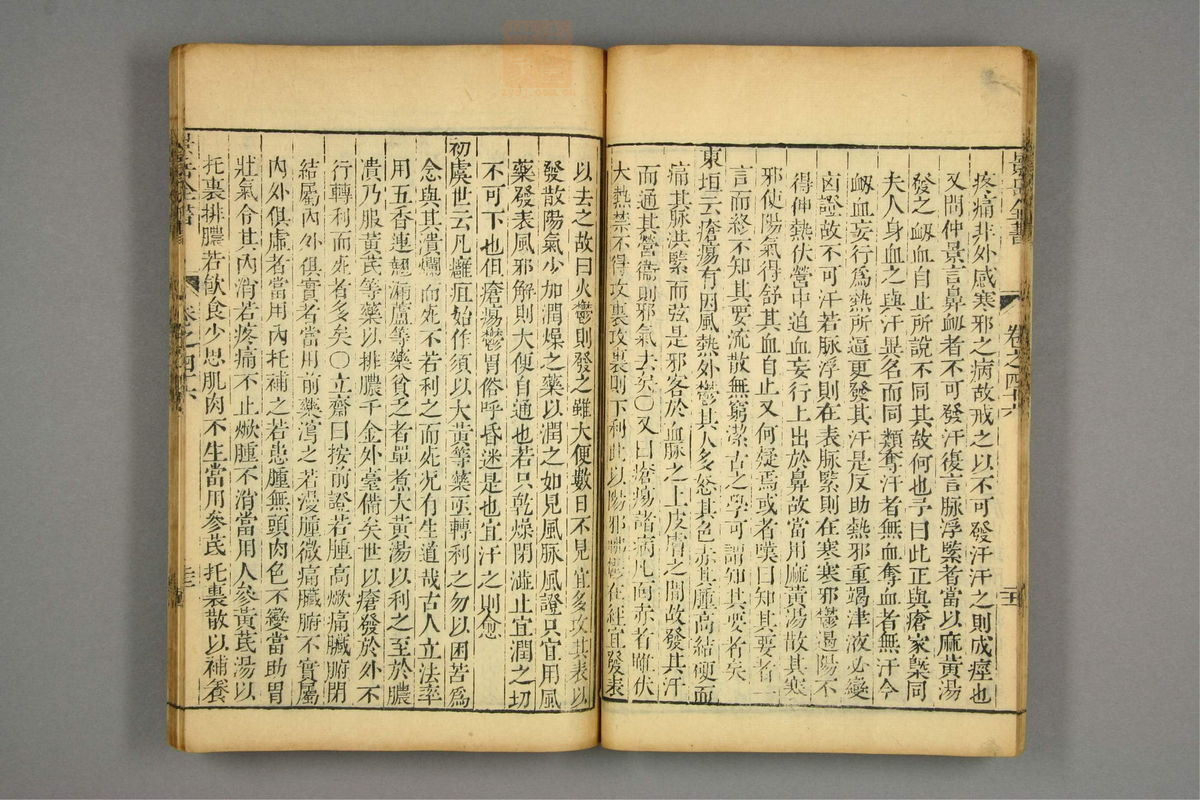 景岳全書 卷之四十六
疼痛非外感寒邪之病故戒之以不可發汗汗之則成痙也
又問仲景言鼻衄者不可發汗復言脉浮緊者當以麻黃湯
發之衄血自止所說不同其故何也予曰此正與瘡家槩同
夫人身血之與汗異名而同類奪汗者無血奪血者無汗今
衄血妄行爲熱所逼更發其汗是反助熱邪重竭津液必變
凶證故不可汗若脉浮則在表脉緊則在寒寒邪鬱遏陽不
得伸熱伏營中迫血妄行上出於鼻故當用麻黃湯散其寒
邪使陽氣得舒其血自止又何疑焉或者嘆曰知其要者一
言而終不知其要流散無窮潔古之學可謂知其要者矣
東垣云瘡瘍有因風熱外鬱其人多怒其色赤其腫高結硬而
痛其脉洪緊而弦是邪客於血脉之上皮膚之間故發其汗
而通其營衞則邪氣去矣〇又曰瘡瘍諸病凡面赤者雖伏
大熱禁不得攻裏攻裏則下利此以陽邪怫鬱在經宜發表
以去之故曰火鬱則發之雖大便數日不見宜多攻其表以
發散陽氣少加潤燥之藥以潤之如見風脉風證只宜用風
藥發表風邪解則大便自通也若只乾燥閉澁止宜潤之切
不可下也但瘡瘍鬱冒俗呼昏迷是也宜汗之則愈
初虞世云凡癰疽始作須以大黃等藥亟轉利之勿以困苦爲
念與其潰爛而死不若利之而死况有生道哉古人立法率
用五香連翹漏蘆等藥貧乏者單煮大黃湯以利之至於膿
潰乃服黃芪等藥以排膿千金外臺備矣世以瘡發於外不
行轉利而死者多矣〇立齋曰按前證若腫高焮痛臟腑閉
結屬內外俱實者當用前藥瀉之若漫腫微痛臟腑不實屬
內外俱虛者當用內托補之若患腫無頭肉色不變當助胃
壯氣令其內消若疼痛不止焮腫不消當用人參黃芪湯以
托裏排膿若飲食少思肌肉不生當用參芪托裏散以補養
景岳全書 卷之四十六